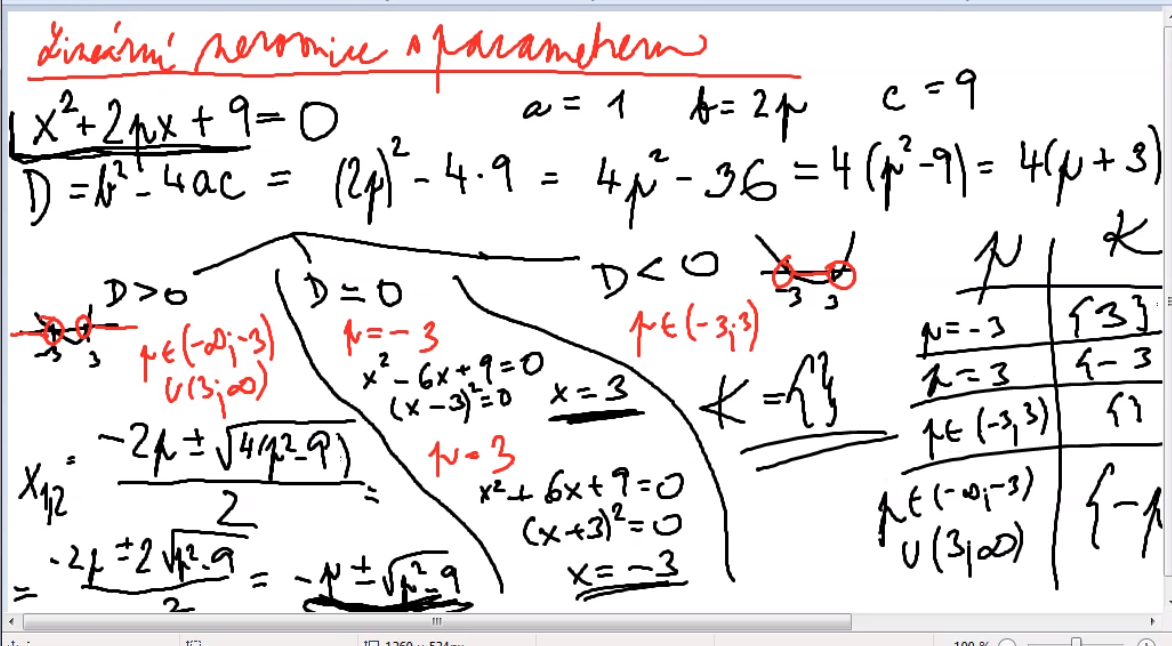 Lineární nerovnice s parametrem
x² + 2px + 9 = 0
a = 1 b = 2p c = 9
D = b² - 4ac = (2p)² - 4·9 = 4p² - 36 = 4(p² - 9) = 4(p + 3)
D > 0
-3 3
p ∈ (-∞; -3)
∪ (3; ∞)
x₁,₂ = (-2p ± √(4(p² - 9))) / 2 =
= (-2p ± 2√(p² - 9)) / 2 = -p ± √(p² - 9)
D = 0
p = -3
x² - 6x + 9 = 0
(x - 3)² = 0 x = 3
p = 3
x² + 6x + 9 = 0
(x + 3)² = 0
x = -3
D < 0
-3 3
p ∈ (-3; 3)
K = {}
p K
p = -3 {3}
p = 3 {-3
p ∈ (-3; 3) {}
p ∈ (-∞; -3) {-p
∪ (3; ∞)